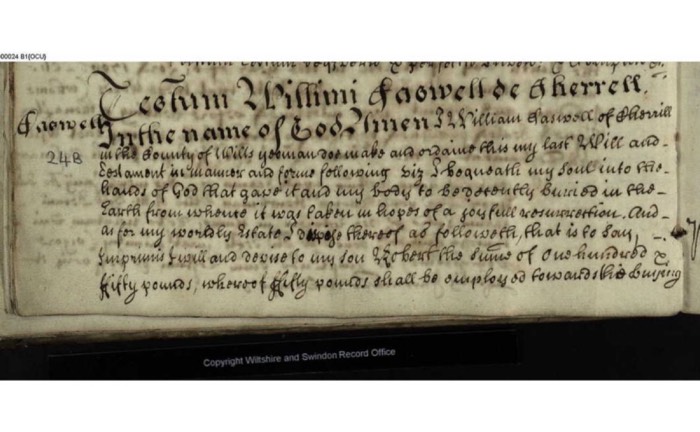 00024 B1(OCU)
Testum Willimi Haswell de Sherrell.
Haswell
24B
In the name of God Amen I William Haswell of Sherrill
in the County of Wilts yeoman doe make and ordaine this my last Will and
Testament in manner and forme following viz I bequeath my Soul into the
hands of God that gave it and my body to be decently buried in the
Earth from whence it was taken in hopes of a joyfull resurrection. And
as for my worldly Estate I dispose thereof as followeth, that is to say,
Imprimis I will and devise to my son Robert the sume of One hundred &
fifty pounds, whereof fifty pounds shall be employed towards the buying
Copyright Wiltshire and Swindon Record Office